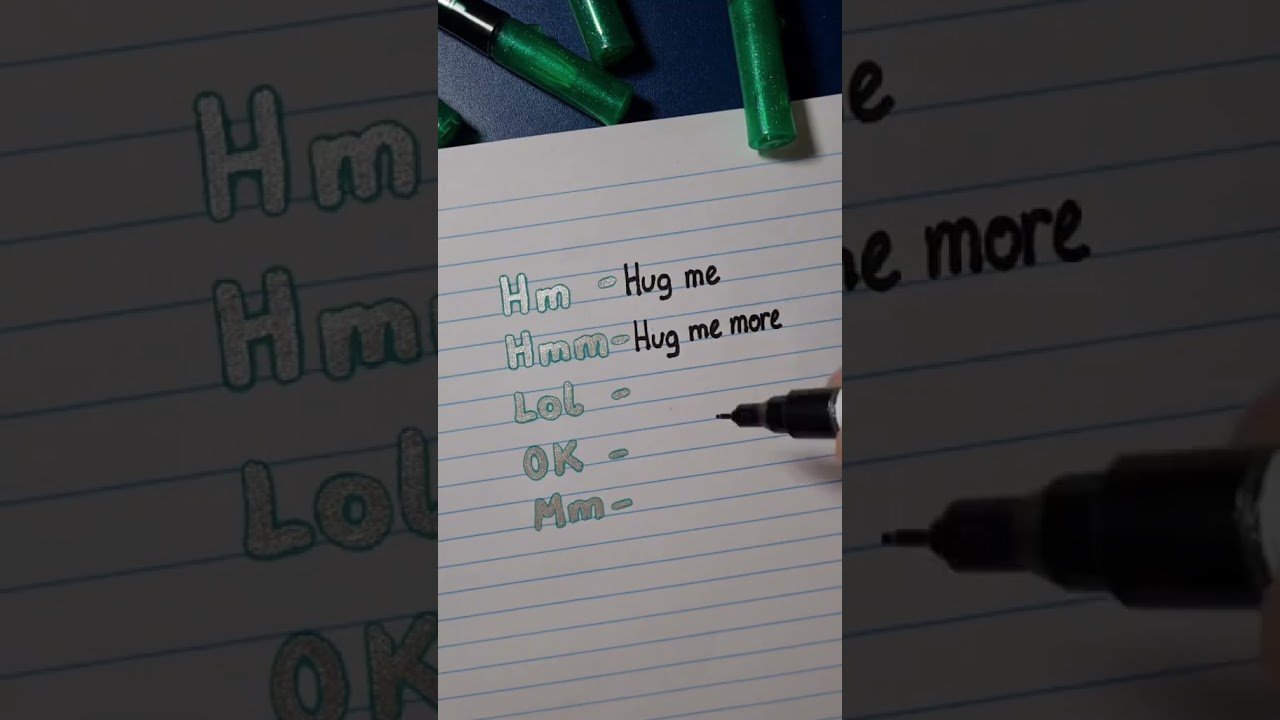 Hm - Hug me
Hmm - Hug me more
Lol -
OK -
Mm -